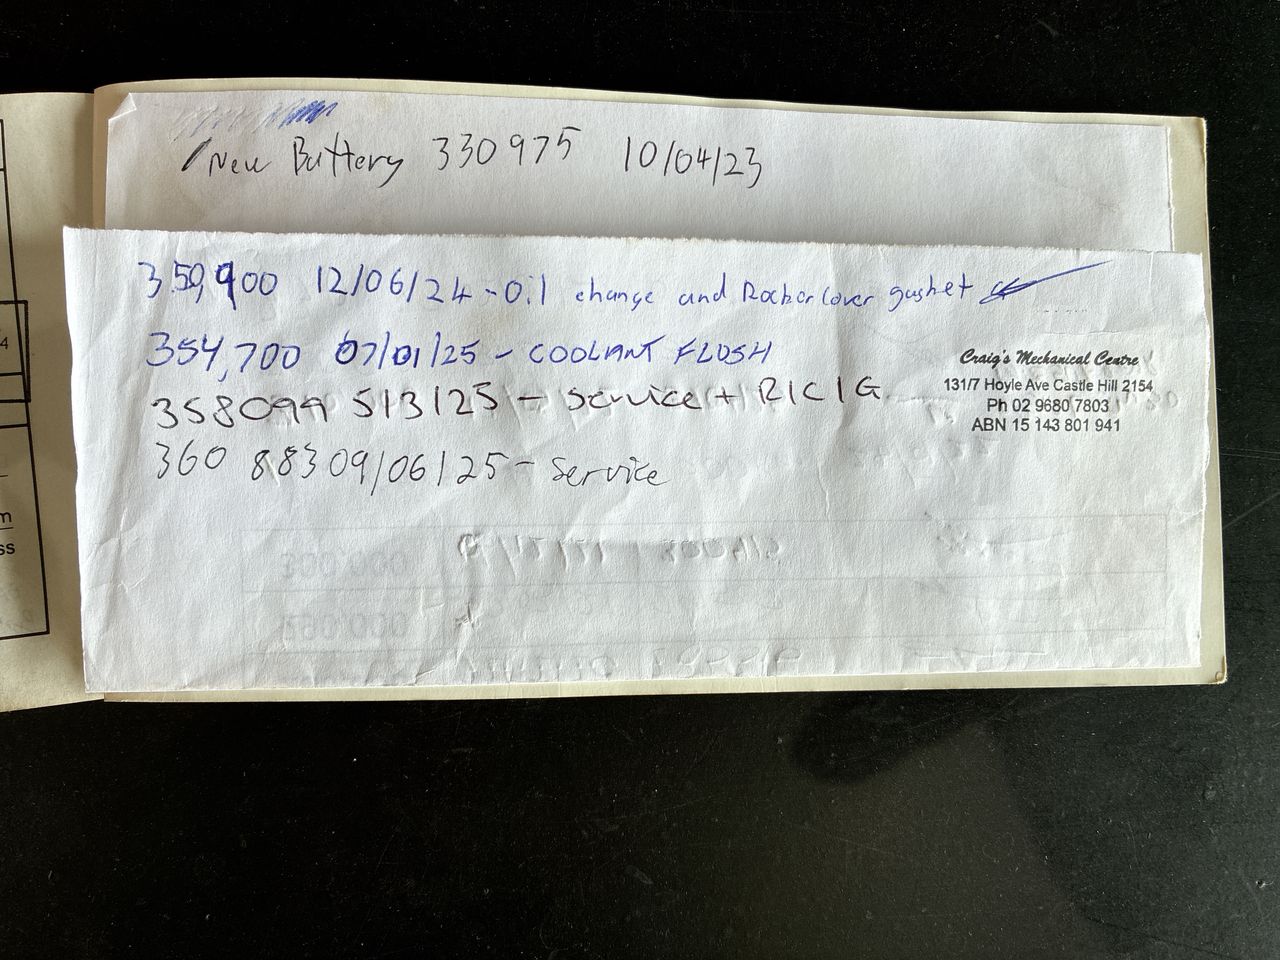 New Buttery 330975 10/04/23
350,900 12/06/24 - Oil change and Rocker Cover gashet
354,700 07/01/25 - COOLANT FLUSH
Craig's Mechanical Centre
131/7 Hoyle Ave Castle Hill 2154
358099 5/3/25 - Service + R/C/G
Ph 02 9680 7803
ABN 15 143 801 941
360 883 09/06/25 - Service
300,000
m
ss
4